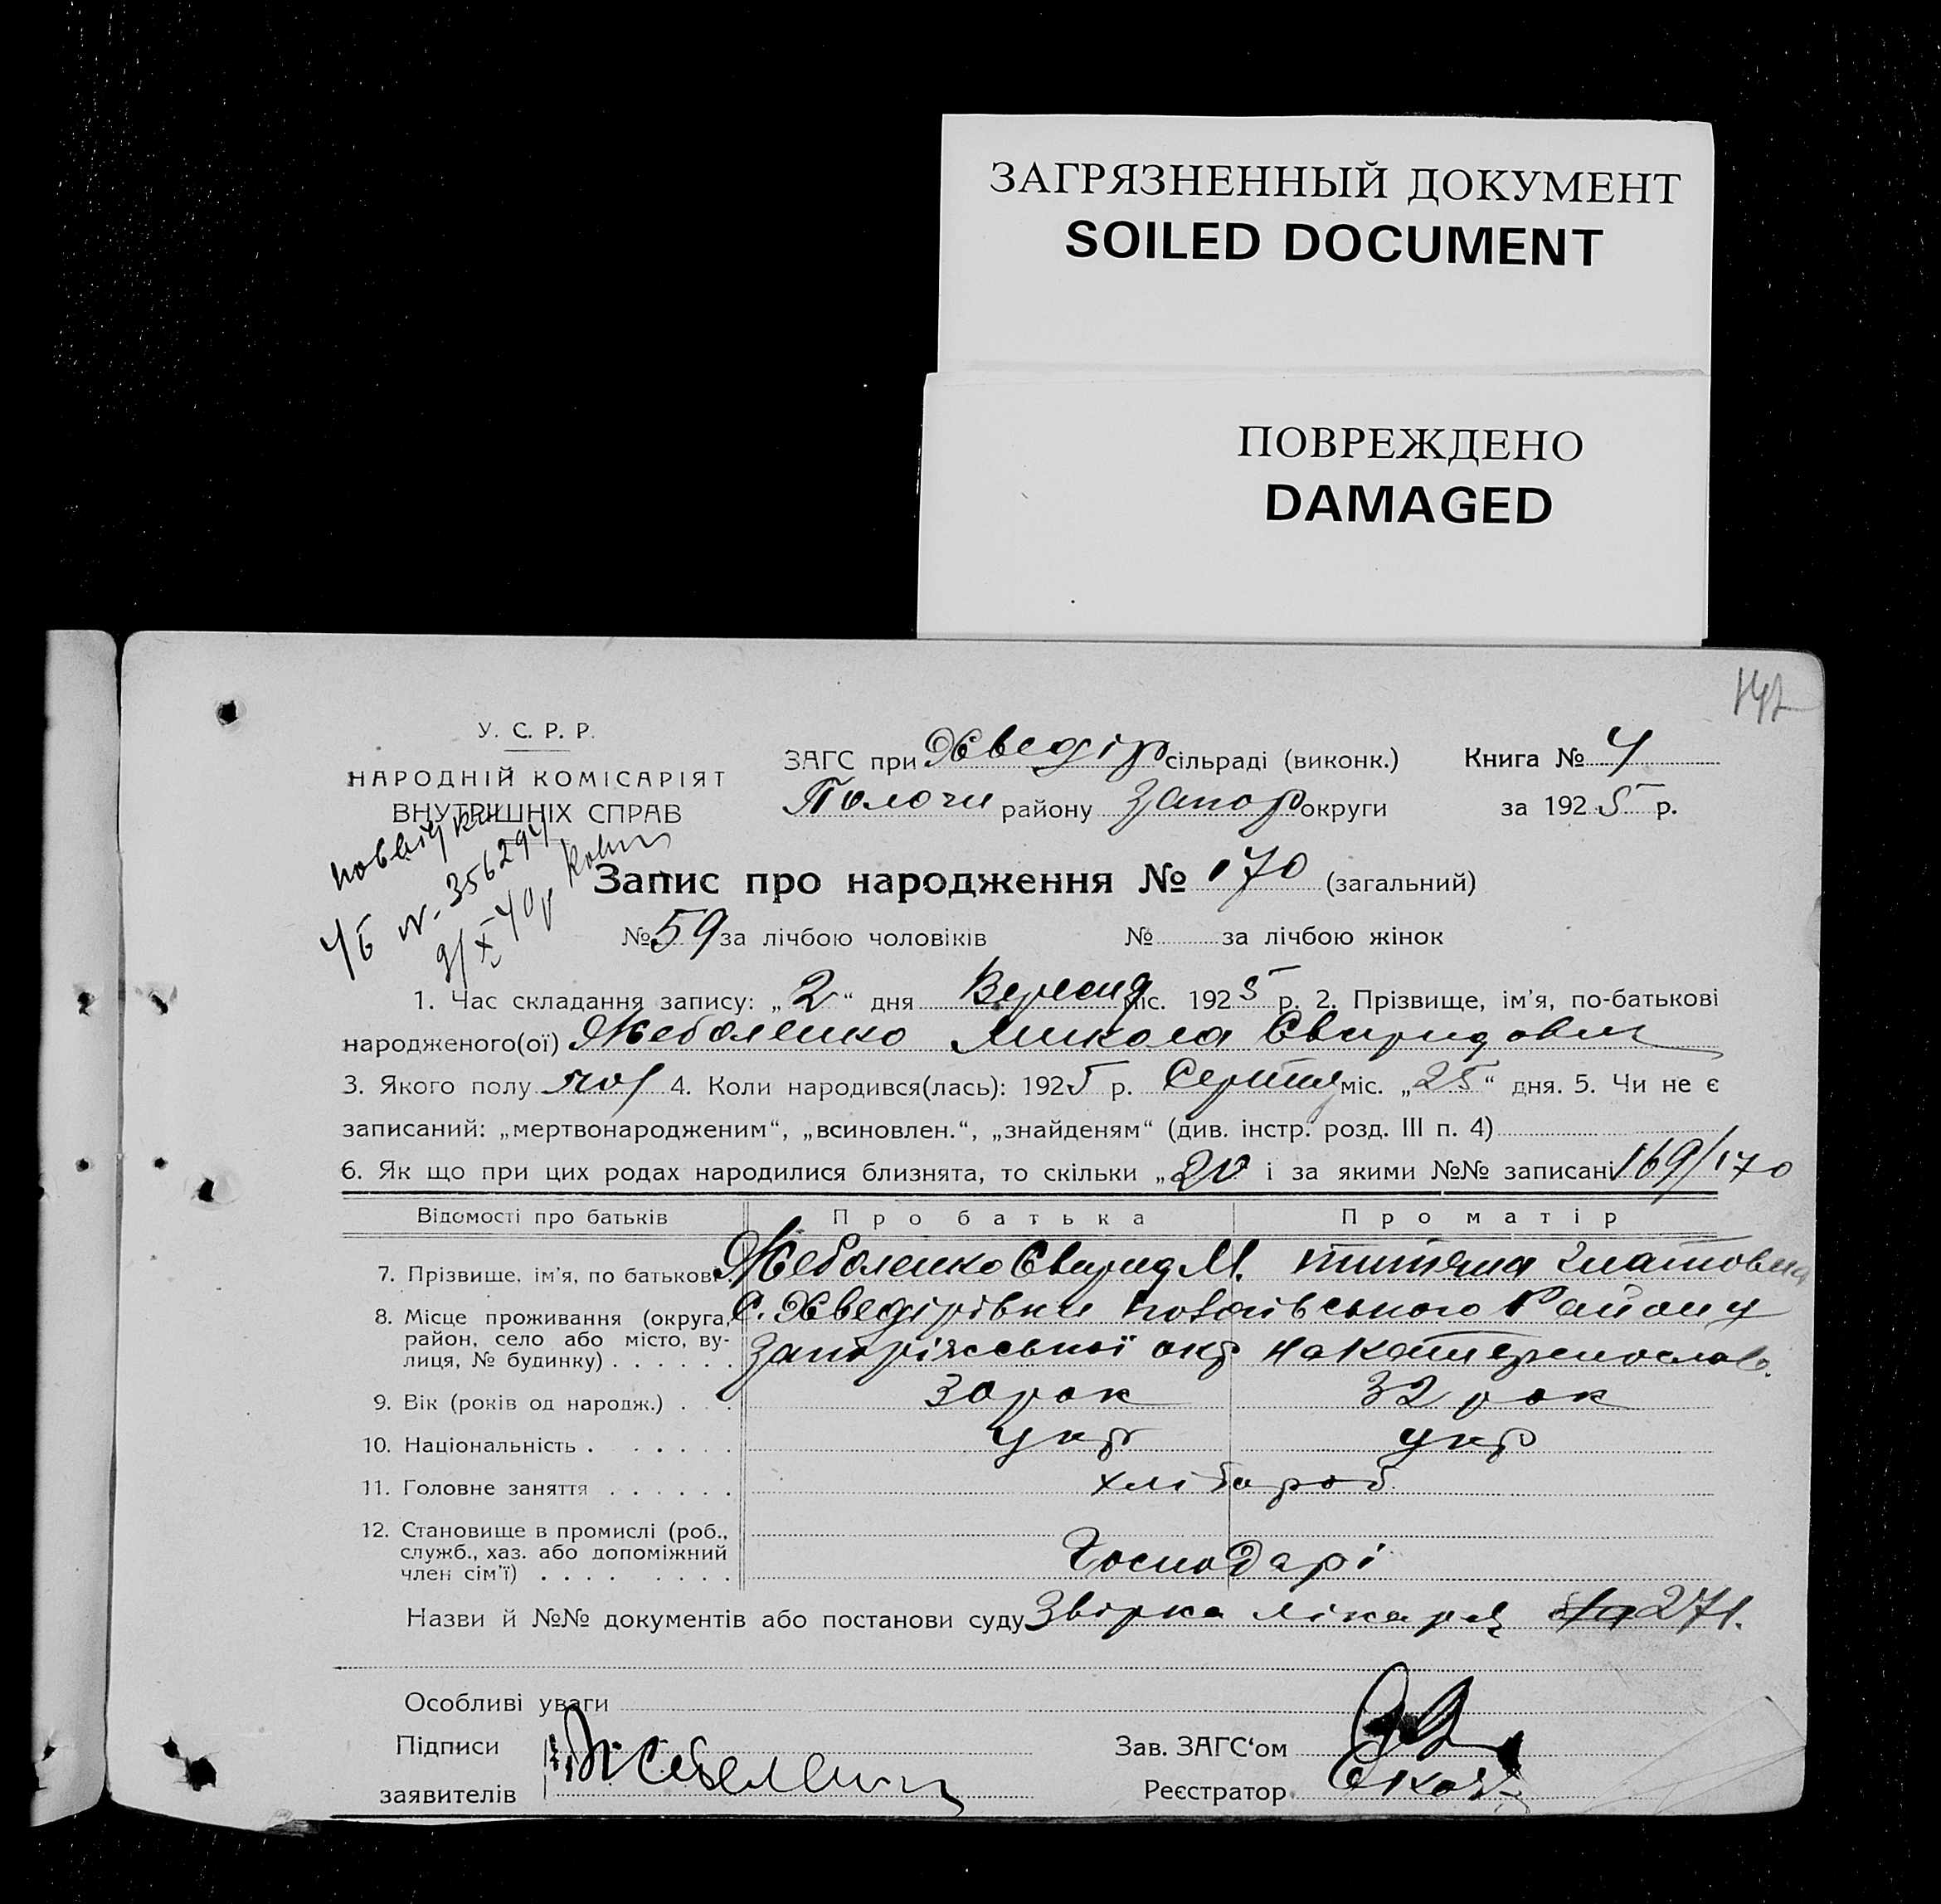 ЗАГРЯЗНЕННЫЙ ДОКУМЕНТ
SOILED DOCUMENT
ПОВРЕЖДЕНО
DAMAGED
У. С. Р. Р.
НАРОДНІЙ КОМІСАРІЯТ
ВНУТРІШНІХ СПРАВ
№ 356294
ЗАГС при Хведір сільраді (виконк.) Книга № 4
Пологи району Запор округи за 1925 р.
Запис про народження № 170 (загальний)
№ 59 за лічбою чоловіків № за лічбою жінок
1. Час складання запису: „2“ дня Вересня міс. 1925 р. 2. Прізвище, ім'я, по-батькові
народженого(ої) Жеболенко Микола Свиридович
3. Якого полу чол 4. Коли народився(лась): 1925 р. Серпня міс. „25“ дня. 5. Чи не є
записаний: „мертвонародженим“, „всиновлен.“, „знайденям“ (див. інстр. розд. III п. 4)
6. Як що при цих родах народилися близнята, то скільки „2 і за якими №№ записані 169/170
Відомості про батьків Про батька Про матір
7. Прізвище, ім'я, по батькові Жеболенко Свирид М. Гнатовна
8. Місце проживання (округа, С. Хведірівки Району
район, село або місто, ву-
лиця, № будинку) Запоріжської окр на Катеринослав.
9. Вік (років од народж.) 30 рок 32 рок
10. Національність укр укр
11. Головне заняття хлібароб
12. Становище в промислі (роб.,
служб., хаз. або допоміжний
член сім'ї) Господарі
Назви й №№ документів або постанови суду Звірка лікаря 271.
Особливі уваги
Підписи Зав. ЗАГС'ом
заявителів Реєстратор